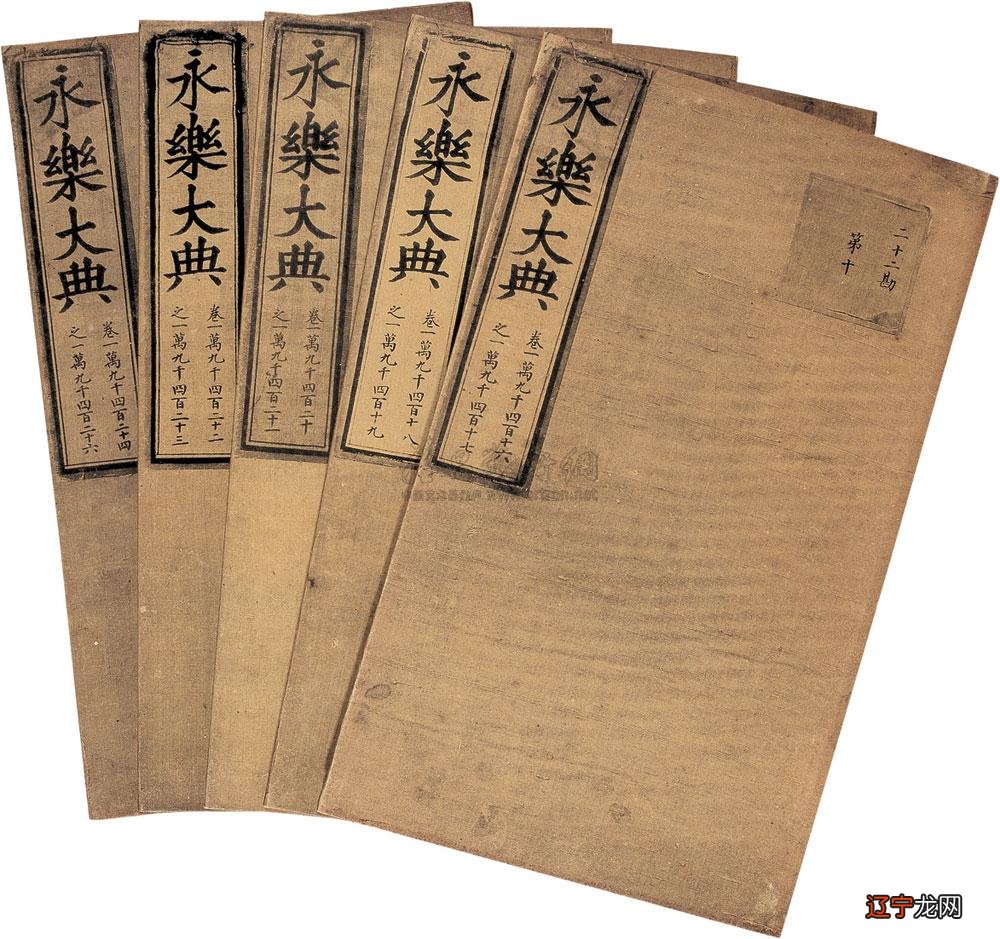 永樂大典
卷一萬九千四百二十四
之一萬九千四百二十六
永樂大典
卷一萬九千四百二十二
之一萬九千四百二十三
永樂大典
卷一萬九千四百二十
之一萬九千四百二十一
永樂大典
卷一萬九千四百十八
之一萬九千四百十九
永樂大典
卷一萬九千四百十六
之一萬九千四百十七
二十二勘
第十
辽宁龙网